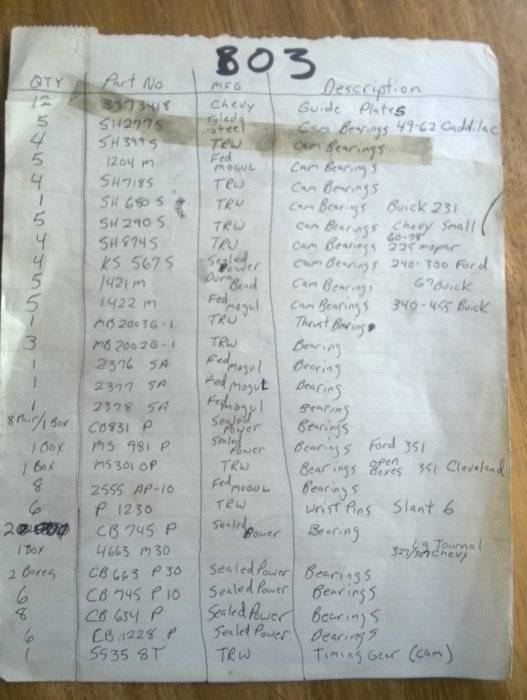 BO3
QTY Part No MFG Description
12 3973418 Chevy Guide Plates
5 SH277S Toledo Steel Cam Bearings 49-62 Caddilac
4 SH399S TRW Cam Bearings
5 1204 M Fed Mogul Cam Bearings
4 SH718S TRW Cam Bearings
1 SH 680 S TRW Cam Bearings Buick 231
5 SH 290 S TRW Cam Bearings Chevy Small
4 SH 874S TRW Cam Bearings 60-78 225 mopar
4 KS 567 S Sealed Power Cam Bearings 240-300 Ford
5 1421 M Dura Bond Cam Bearings 67 Buick
5 1422 M Fed Mogul Cam Bearings 340-455 Buick
1 MB2003G-1 TRW Thrust Bearing
3 MB2002G-1 TRW Bearing
1 2376 SA Fed Mogul Bearing
1 2377 SA Fed Mogul Bearing
1 2378 SA Fed Mogul Bearing
8 Pair/1 Box CB831 P Sealed Power Bearings
1 Box MS 981 P Sealed Power Bearings Ford 351
1 Box MS3010P TRW Bearings open Boxes 351 Cleveland
8 2555 AP-10 Fed Mogul Bearings
6 P 1230 TRW Wrist Pins Slant 6
2 CB 745 P Sealed Power Bearing
1 Box 4663 M30 Lg Journal 327/307 Chevy
2 Boxes CB 663 P 30 Sealed Power Bearings
6 CB 745 P 10 Sealed Power Bearings
8 CB 634 P Sealed Power Bearings
6 CB 1228 P Sealed Power Bearings
1 SS35 8T TRW Timing Gear (cam)